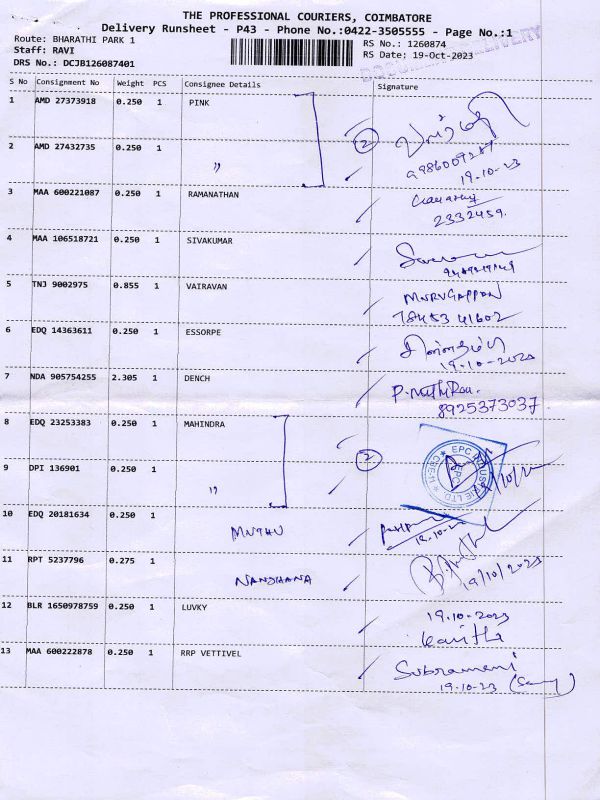 THE PROFESSIONAL COURIERS, COIMBATORE
Delivery Runsheet - P43 - Phone No.:0422-3505555 - Page No.:1
Route: BHARATHI PARK 1
Staff: RAVI
DRS No.: DCJB126087401
RS No.: 1260874
RS Date: 19-Oct-2023
DELIVERY
S No Consignment No Weight PCS Consignee Details Signature
1 AMD 27373918 0.250 1 PINK
2
19.10.23
2 AMD 27432735 0.250 1 "
3 MAA 600221087 0.250 1 RAMANATHAN
2332459.
4 MAA 106518721 0.250 1 SIVAKUMAR
5 TNJ 9002975 0.855 1 VAIRAVAN
MURUGAPPAN
78453 41602
6 EDQ 14363611 0.250 1 ESSORPE
19.10.2023
7 NDA 905754255 2.305 1 DENCH
8925373037.
8 EDQ 23253383 0.250 1 MAHINDRA
2
9 DPI 136901 0.250 1 "
10 EDQ 20181634 0.250 1 MUTHU
11 RPT 5237796 0.275 1 NANDHANA
19/10/2023
12 BLR 1650978759 0.250 1 LUVKY
19.10.2023
Kavitha
13 MAA 600222878 0.250 1 RRP VETTIVEL
Subramani
19.10.23